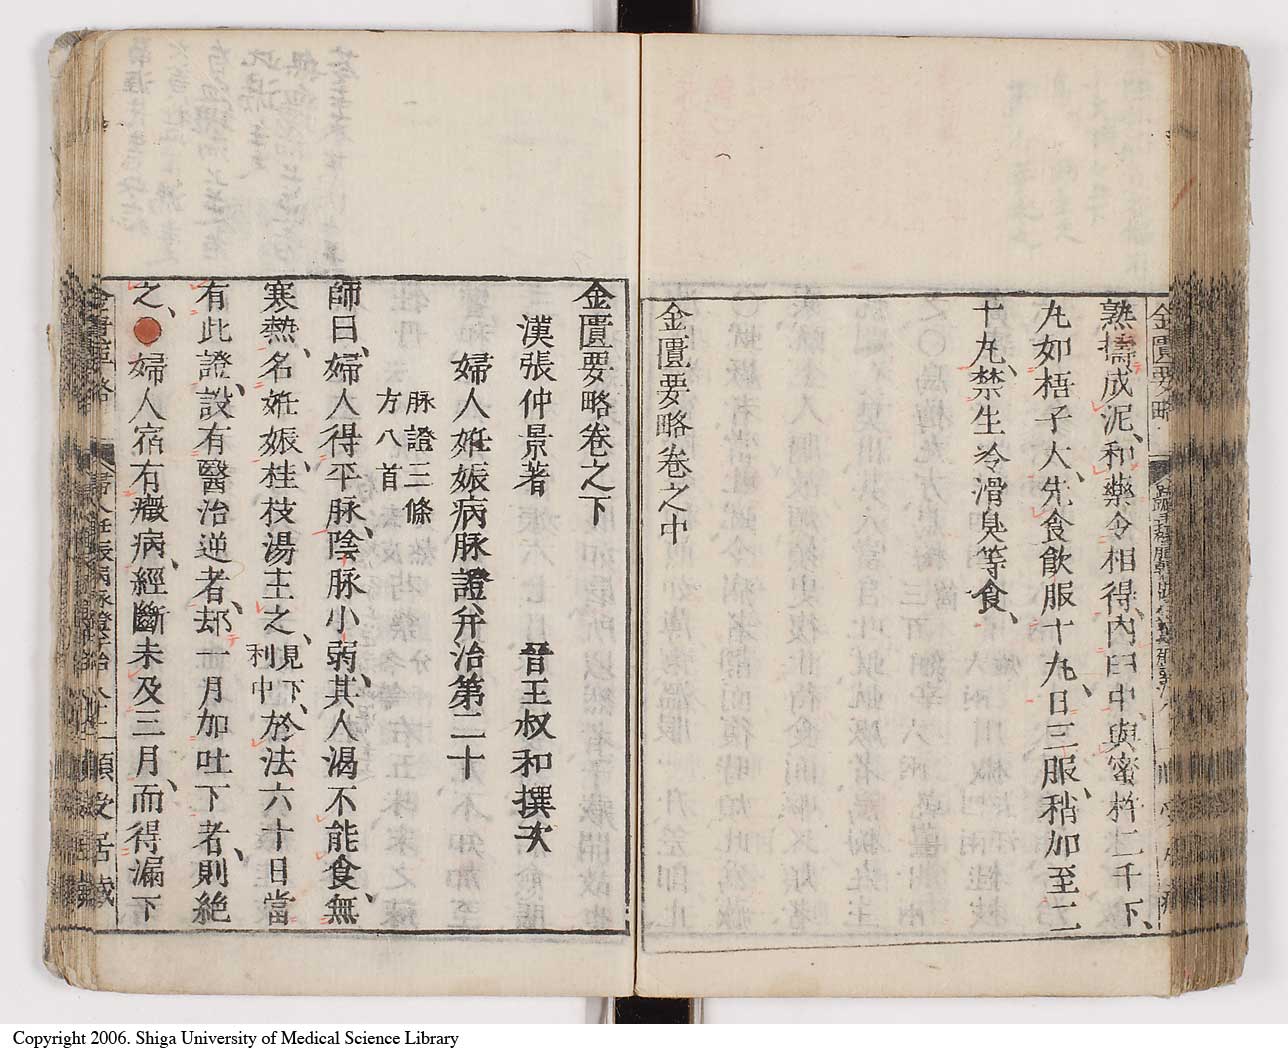 熟擣成泥、和藥令相得、内臼中、與蜜杵二千下、
丸如梧子大、先食飲服十丸、日三服、稍加至二
十丸、禁生冷滑臭等食、
金匱要略卷之中
金匱要略
金匱要略卷之下
漢張仲景著 晉王叔和撰次
婦人妊娠病脉證、并治第二十
脉證三條
方八首
師曰、婦人得平脉、陰脉小弱、其人渴不能食、無
寒熱、名妊娠、桂枝湯主之、方見下利中、於法六十日當
有此證、設有醫治逆者、却一月加吐下者、則絶
之、●婦人宿有癥病、經斷未及三月、而得漏下
Copyright 2006. Shiga University of Medical Science Library